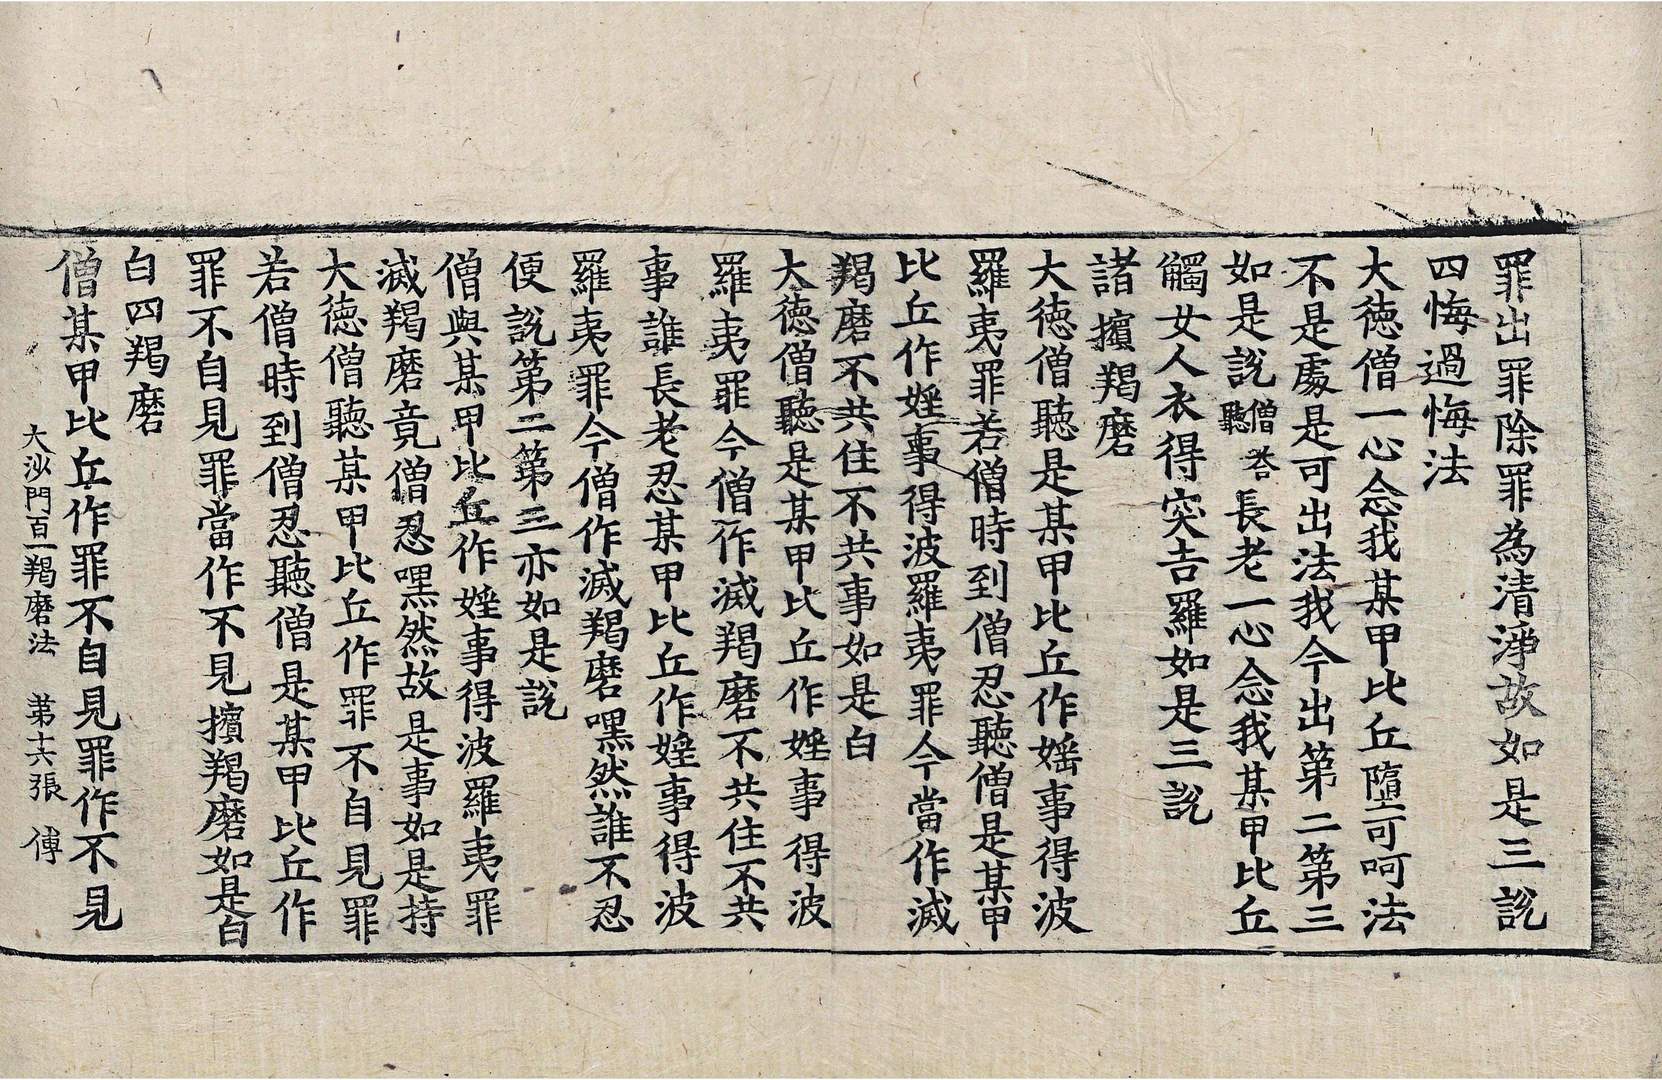 罪出罪除罪為清淨故如是三說
四悔過悔法
大徳僧一心念我某甲比丘墮可呵法
不是處是可出法我今出第二第三
如是說僧聽答長老一心念我某甲比丘
觸女人衣得突吉羅如是三說
諸擯羯磨
大徳僧聽是某甲比丘作婬事得波
羅夷罪若僧時到僧忍聽僧是某甲
比丘作婬事得波羅夷罪今當作滅
羯磨不共住不共事如是白
大徳僧聽是某甲比丘作婬事得波
羅夷罪今僧作滅羯磨不共住不共
事誰長老忍某甲比丘作婬事得波
羅夷罪今僧作滅羯磨嘿然誰不忍
便說第二第三亦如是說
僧與某甲比丘作婬事得波羅夷罪
滅羯磨竟僧忍嘿然故是事如是持
大徳僧聽某甲比丘作罪不自見罪
若僧時到僧忍聽僧是某甲比丘作
罪不自見罪當作不見擯羯磨如是白
白四羯磨
僧某甲比丘作罪不自見罪作不見
大沙門百一羯磨法 第十六張 傅